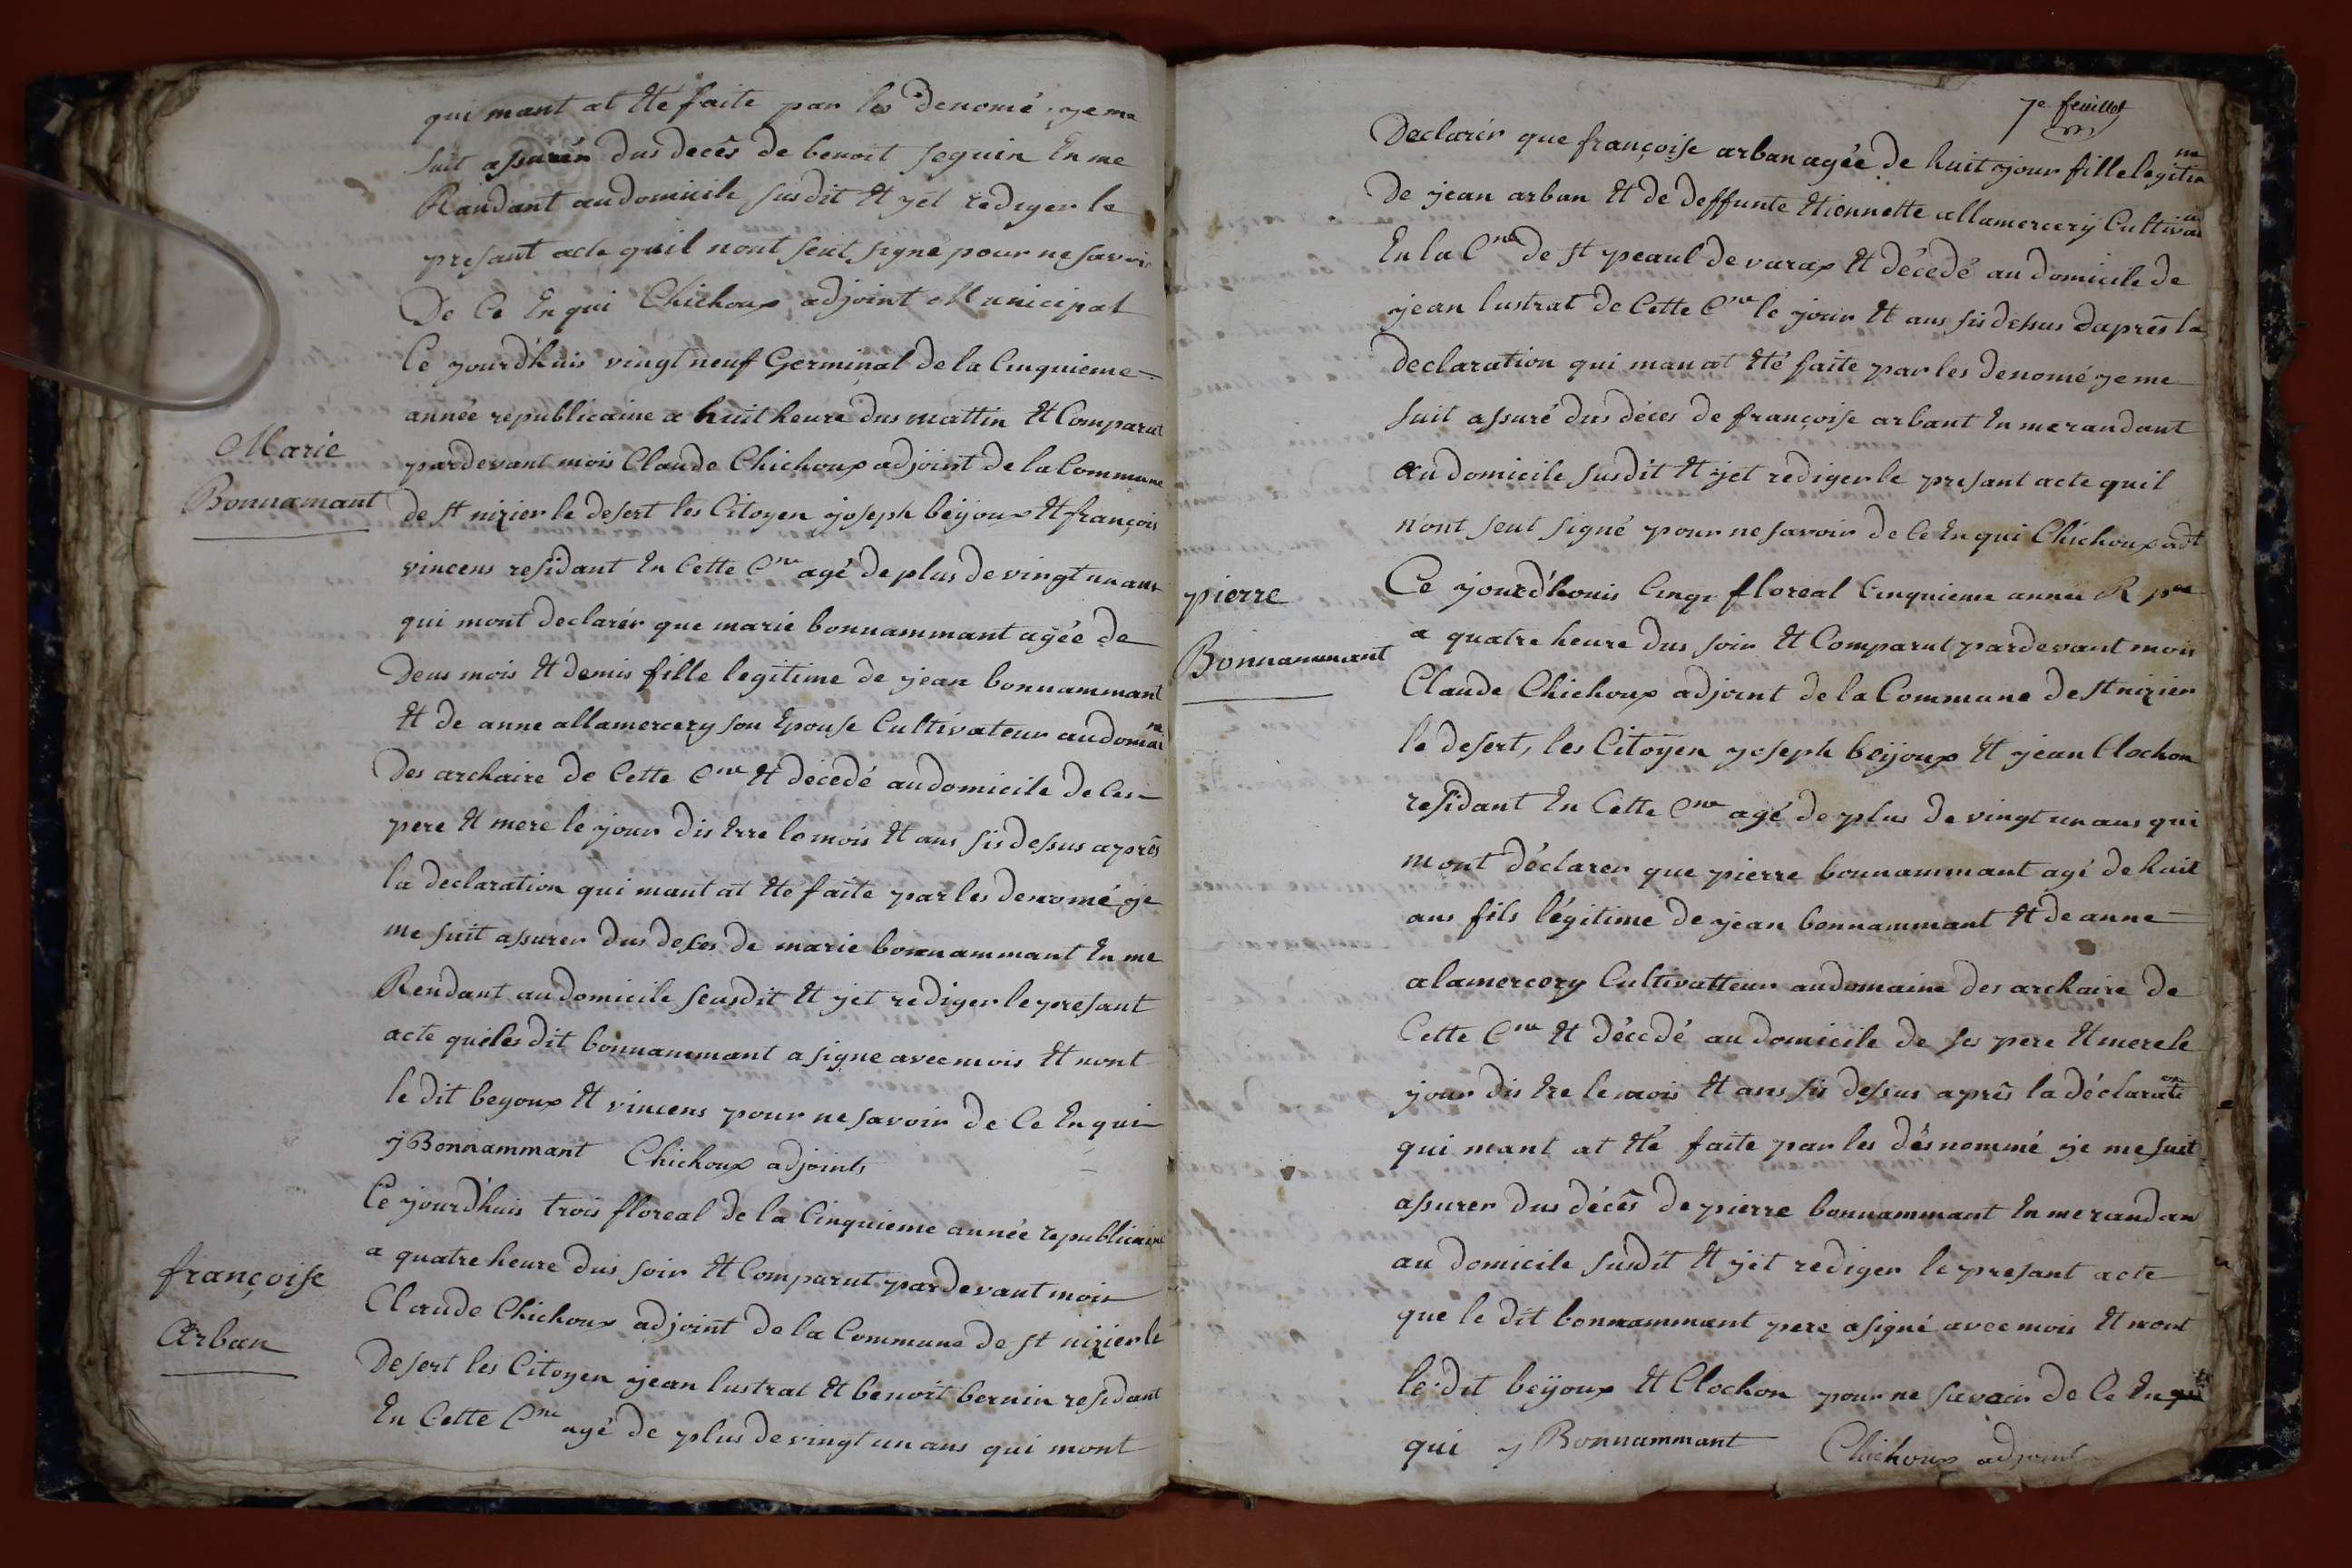 qui mant at été faite par les denomé je me
suit assurér dus decês de benoit seguin En me
Randant au domicile susdit Et jet rediger le
presant acte quil nont seut signé pour ne savoir
De Ce En qui Chichoux adjoint Municipal
Marie
Bonnamant
Ce jourd'huis vingt neuf Germinal de la Cinquieme
année republicaine a huit heure dus mattin Et Comparut
pardevant mois Claude Chichoux adjoint de la Commune
de st nizier le desert les Citoyen joseph beÿoux Et françois
vincens residant En Cette Cne agé de plus de vingt un ans
qui mont declarér que marie bonnammant agée de
Deus mois Et demis fille legitime de jean bonnammant
Et de anne allamercery son Epouse Cultivateur au domaine
Des archaire de Cette Cne Et décedé au domicile de Ces
pere Et mere le jour dis Erre le mois Et ans sis dessus après
la declaration qui mant at été faite par les denomé je
me suit assurer dus deses de marie bonnammant En me
Rendant au domicile seusdit Et jet rediger le presant
acte quéles dit bonnammant a signe avec mois Et nont
le dit beyoux Et vincens pour ne savoir de Ce En qui
j Bonnammant Chichoux adjoints
françoise
Arban
Ce jourd'huis trois floreal de la Cinquieme année republicaine
a quatre heure dus soir Et Comparut pardevant mois
Claude Chichoux adjoint de la Commune de st nizier le
Desert les Citoyen jean lustrat Et benoit bernin residant
En Cette Cne agé de plus de vingt un ans qui mont
7e feuillet
Declarér que françoise arban agée de huit jour fille legitime
De jean arban Et de deffunte Etiennette allamercerÿ Cultivat
En la Cne de st peaul de varax Et décedé au domicile de
jean lustrat de Cette Cne le jour Et ans sis dessus daprès la
declaration qui man at été faite par les denomé je me
suit assuré dus déces de françoise arbant En me randant
au domicile susdit Et jet rediger le presant acte quil
n'ont seut signé pour ne savoir de Ce En qui Chichoux adt
pierre
Bonnammant
Ce jourd'houis Cinqr floreal Cinquieme année R pne
a quatre heure dus soir Et Comparut pardevant mois
Claude Chichoux adjoint de la Commune de st nizier
le desert, les Citoÿen joseph beÿoux Et jean Clochon
residant En Cette Cne agé de plus de vingt un ans qui
mont déclarer que pierre bonnammant agé de huit
ans fils légitime de jean bonnammant Et de anne
alamercery Cultivatteur au domaine des archaire de
Cette Cne Et décedé au domicile de ses pere Et mere le
jour dis Ere le mois Et ans sis dessus après la déclaration
qui mant at été faite par les désnommé je me suit
assurer dus décês de pierre bonnammant En me randan
au domicile susdit Et jet rediger le presant acte
que le dit bonnammant pere asigné avec mois Et nont
le dit beÿoux Et Clochon pour ne savoir de Ce En
qui j Bonnammant Chichoux adjoint